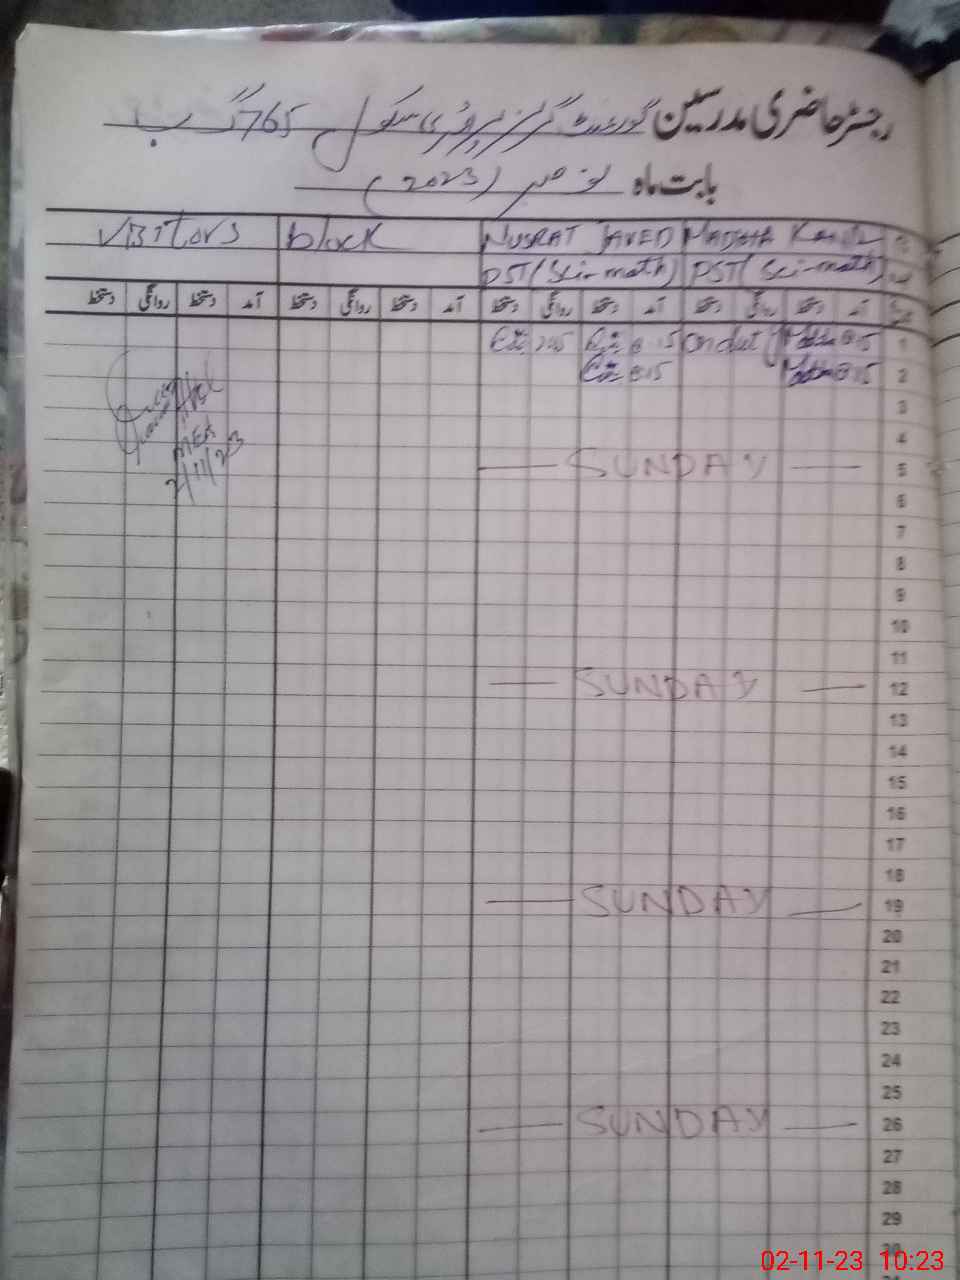 رجسٹر حاضری مدرسین گورنمنٹ گرلز پرائمری سکول 765 گ ب
بابت ماہ نومبر (2023)
VISITORS block NUSRAT JAVED MADIHA
PST (Sci-math) PST (Sci-math)
دستخط روانگی دستخط آمد دستخط روانگی دستخط آمد دستخط روانگی دستخط آمد دستخط روانگی دستخط آمد
2:45 8:15 On duty 8:15 1
8:15 8:15 2
3
MEA
4
2/11/23
— SUNDAY — 5
6
7
8
9
10
11
— SUNDAY — 12
13
14
15
16
17
18
— SUNDAY — 19
20
21
22
23
24
25
— SUNDAY — 26
27
28
29
30
02-11-23 10:23